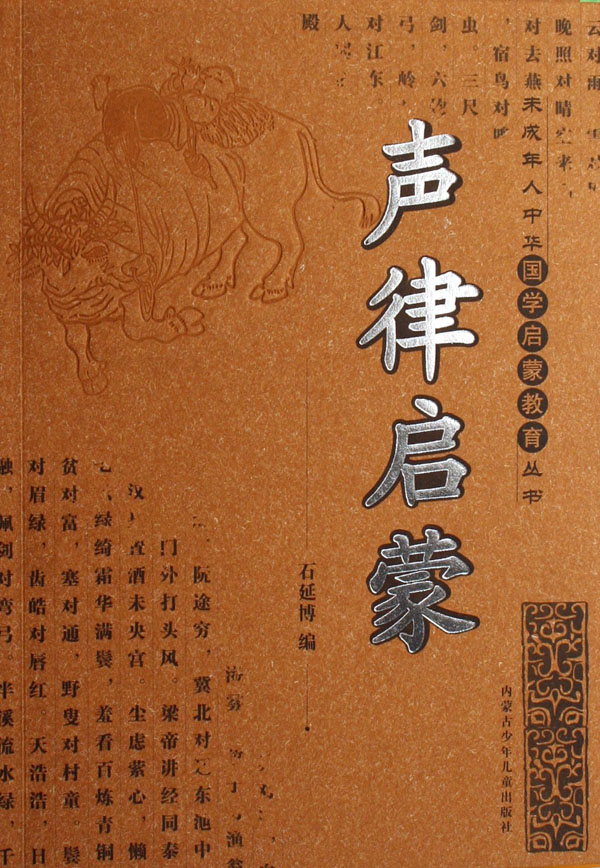 云对雨
晚照对晴
对去燕
，宿鸟对
虫。三尺
剑，六
弓，岭
对江东。
人
殿
未成年人中华国学启蒙教育丛书
声律启蒙
石延博 编
内蒙古少年儿童出版社
阮途穷，冀北对 东池中
门外打头风。梁帝讲经同泰
汉 置酒未央宫。尘虑萦心，懒
绿绮霜华满鬓，羞看百炼青铜
贫对富，塞对通，野叟对村童。鬓
对眉绿，齿皓对唇红。天浩浩，日
融，佩剑对弯弓。半溪流水绿，千